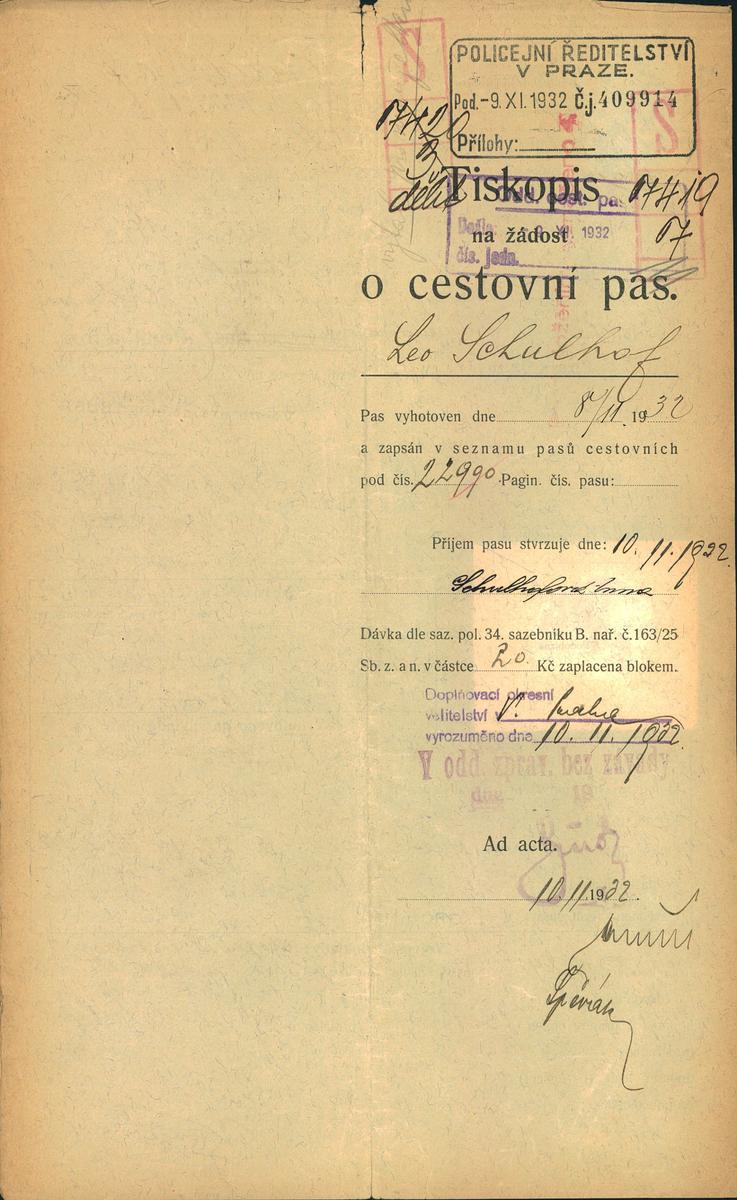 S
POLICEJNÍ ŘEDITELSTVÍ
V PRAZE.
Pod. -9. XI. 1932 Č.j. 409914
Přílohy:
S
Tiskopis 07419
na žádost 07
Odd. cest. pa
XI. 1932
čís. jedn.
o cestovní pas.
Leo Schulhof
Pas vyhotoven dne 8/11 1932
a zapsán v seznamu pasů cestovních
pod čís. 22990 Pagin. čís. pasu:
Příjem pasu stvrzuje dne: 10. 11. 1932
Schulhofová
Dávka dle saz. pol. 34. sazebníku B. nař. č. 163/25
Sb. z. a n. v částce 20 Kč zaplacena blokem.
Doplňovací okresní
velitelství v
vyrozuměno dne 10. 11. 1932
V odd. zprav. bez závady.
dne 19
Ad acta.
10/11 1932.